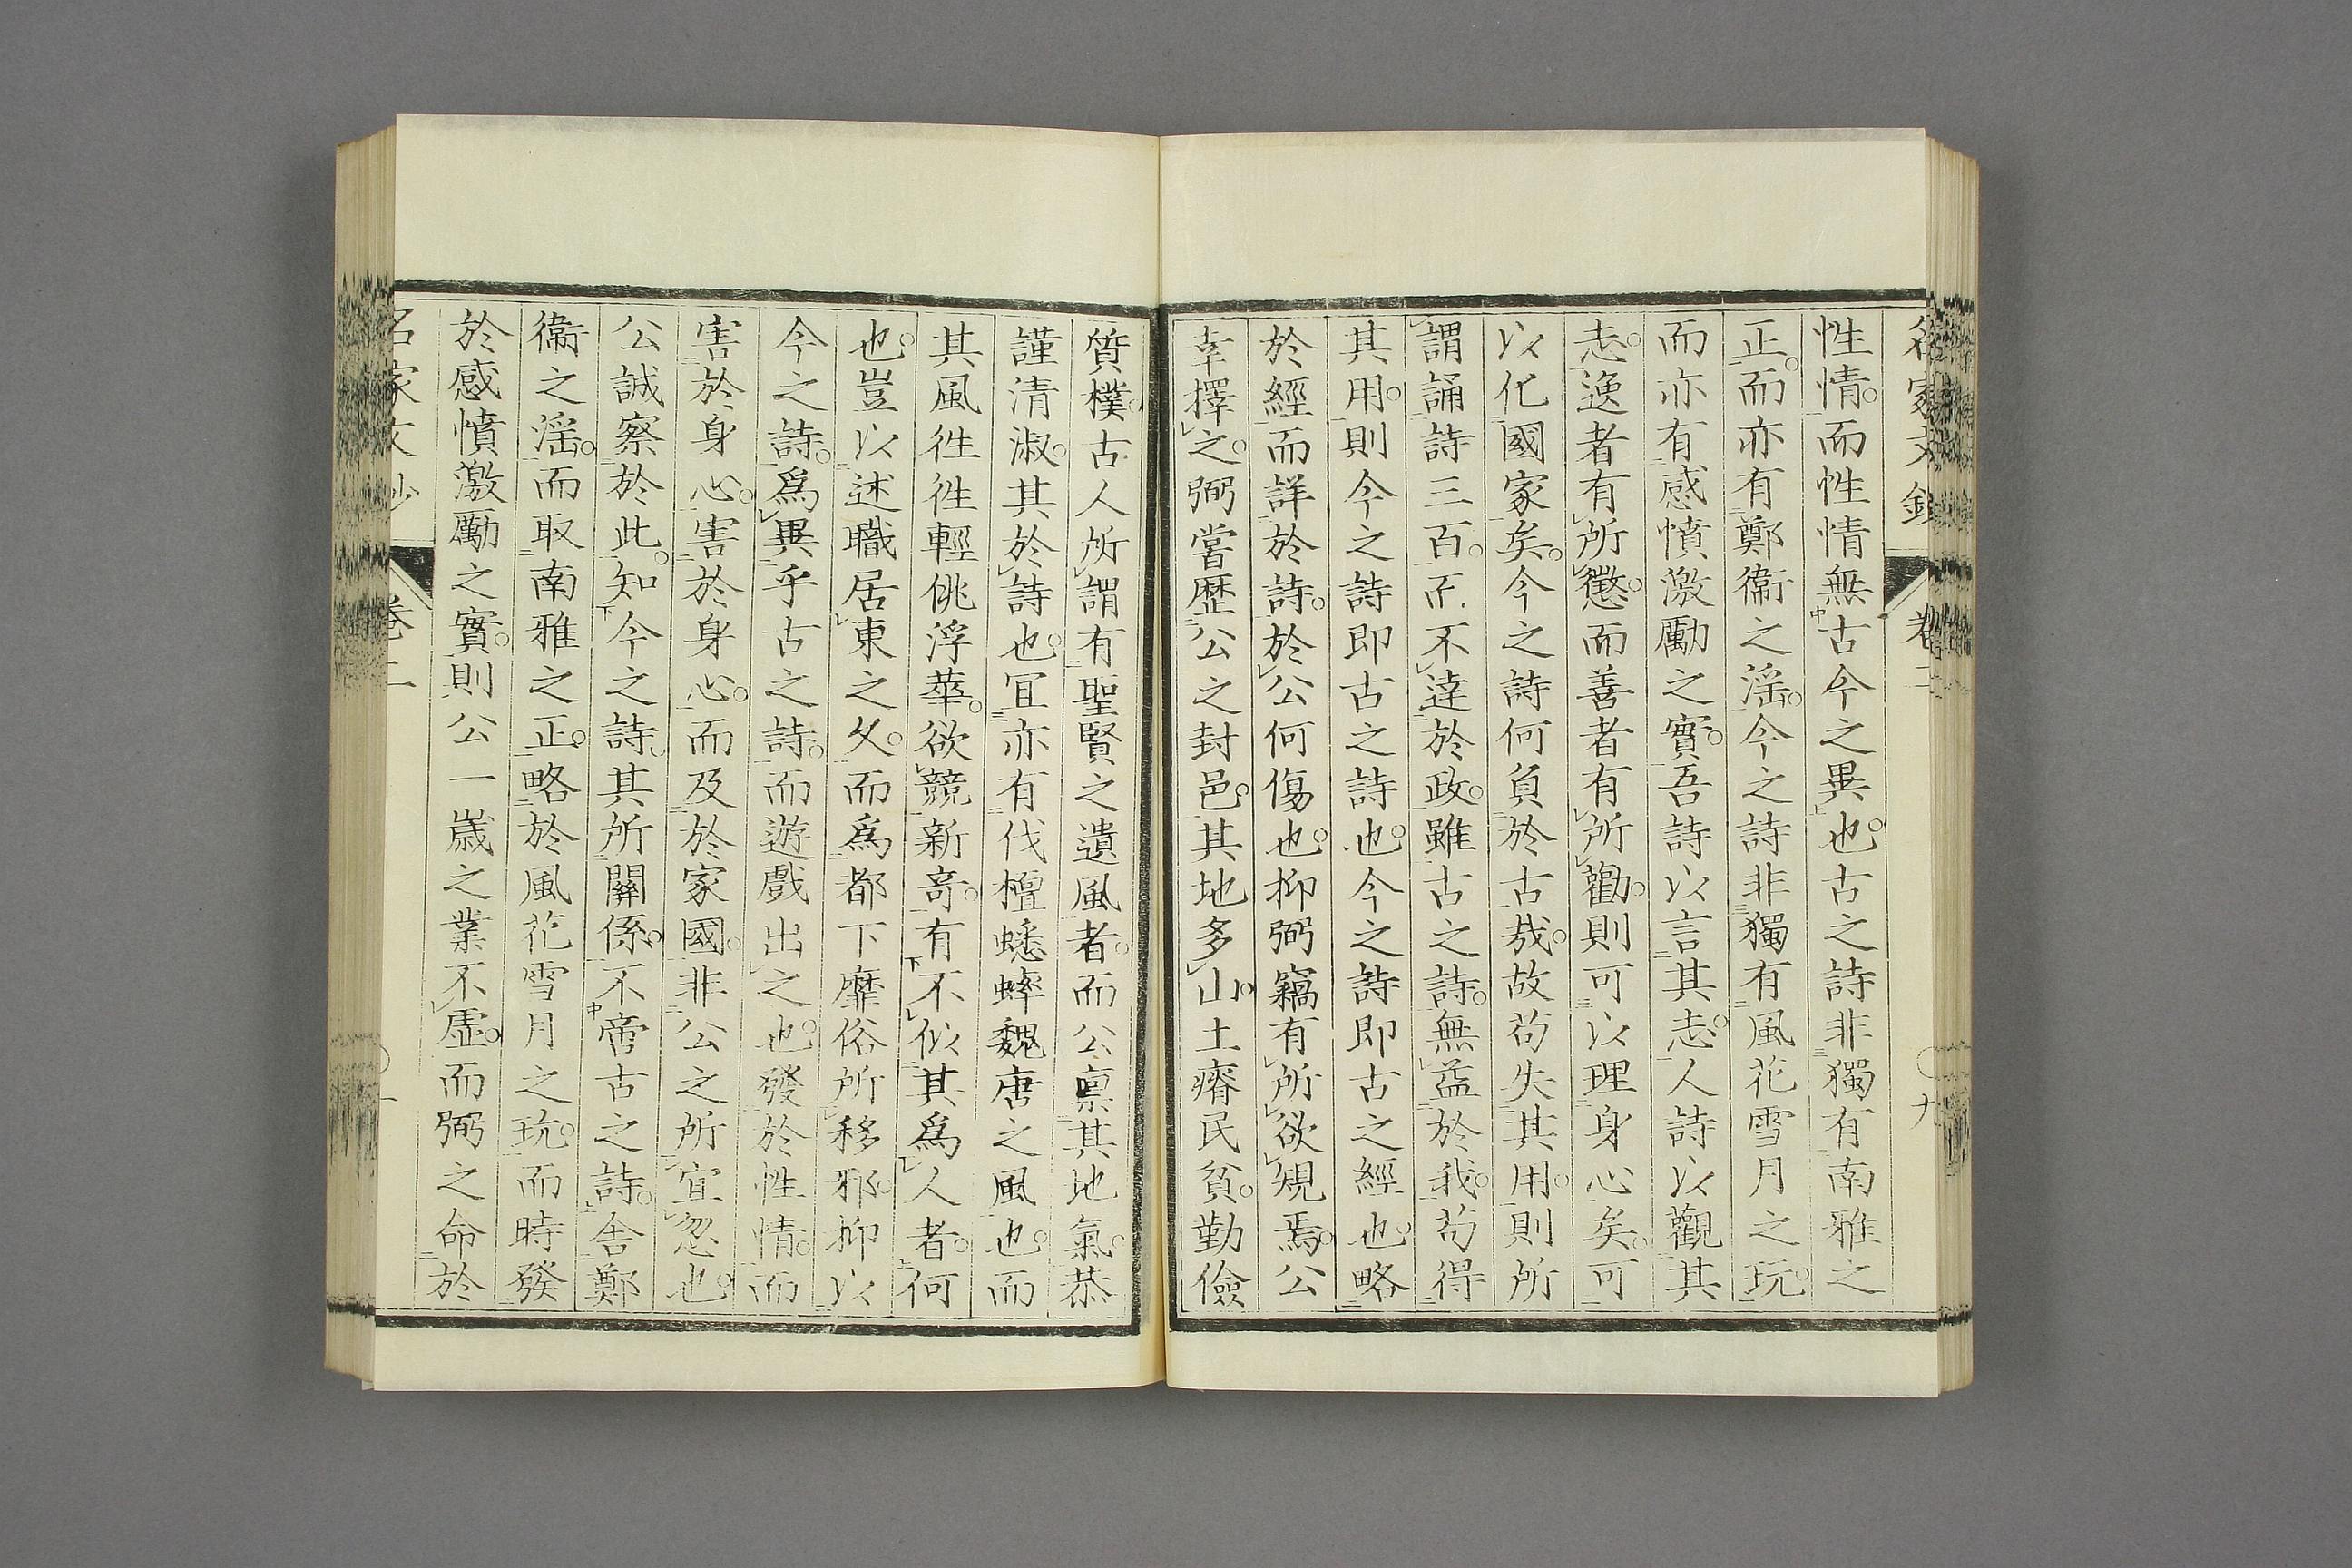 名家文鈔 卷二 九
性情。而性情無古今之異也。古之詩非獨有南雅之
正。而亦有鄭衞之淫。今之詩非獨有風花雪月之玩。
而亦有感憤激勵之實。吾詩以言其志。人詩以觀其
志。逸者有所懲。而善者有所勸。則可以理身心矣。可
以化國家矣。今之詩何負於古哉。故苟失其用。則所
謂誦詩三百。而不達於政。雖古之詩。無益於我。苟得
其用。則今之詩即古之詩也。今之詩即古之經也。略
於經而詳於詩。於公何傷也。抑弼竊有所欲規焉。公
幸擇之。弼嘗歷公之封邑。其地多山。土瘠民貧。勤儉
質樸。古人所謂有聖賢之遺風者。而公稟其地氣。恭
謹清淑。其於詩也。宜亦有伐檀蟋蟀魏唐之風也。而
其風徃徃輕佻浮華。欲競新奇。有不似其爲人者。何
也。豈以述職居東之久。而爲都下靡俗所移邪。抑以
今之詩。爲異乎古之詩。而遊戲出之也。發於性情。而
害於身心。害於身心。而及於家國。非公之所宜忽也。
公誠察於此。知今之詩其所關係。不啻古之詩。舍鄭
衞之淫。而取南雅之正。略於風花雪月之玩。而時發
於感憤激勵之實。則公一歲之業不虛。而弼之命於
名家文鈔 卷二